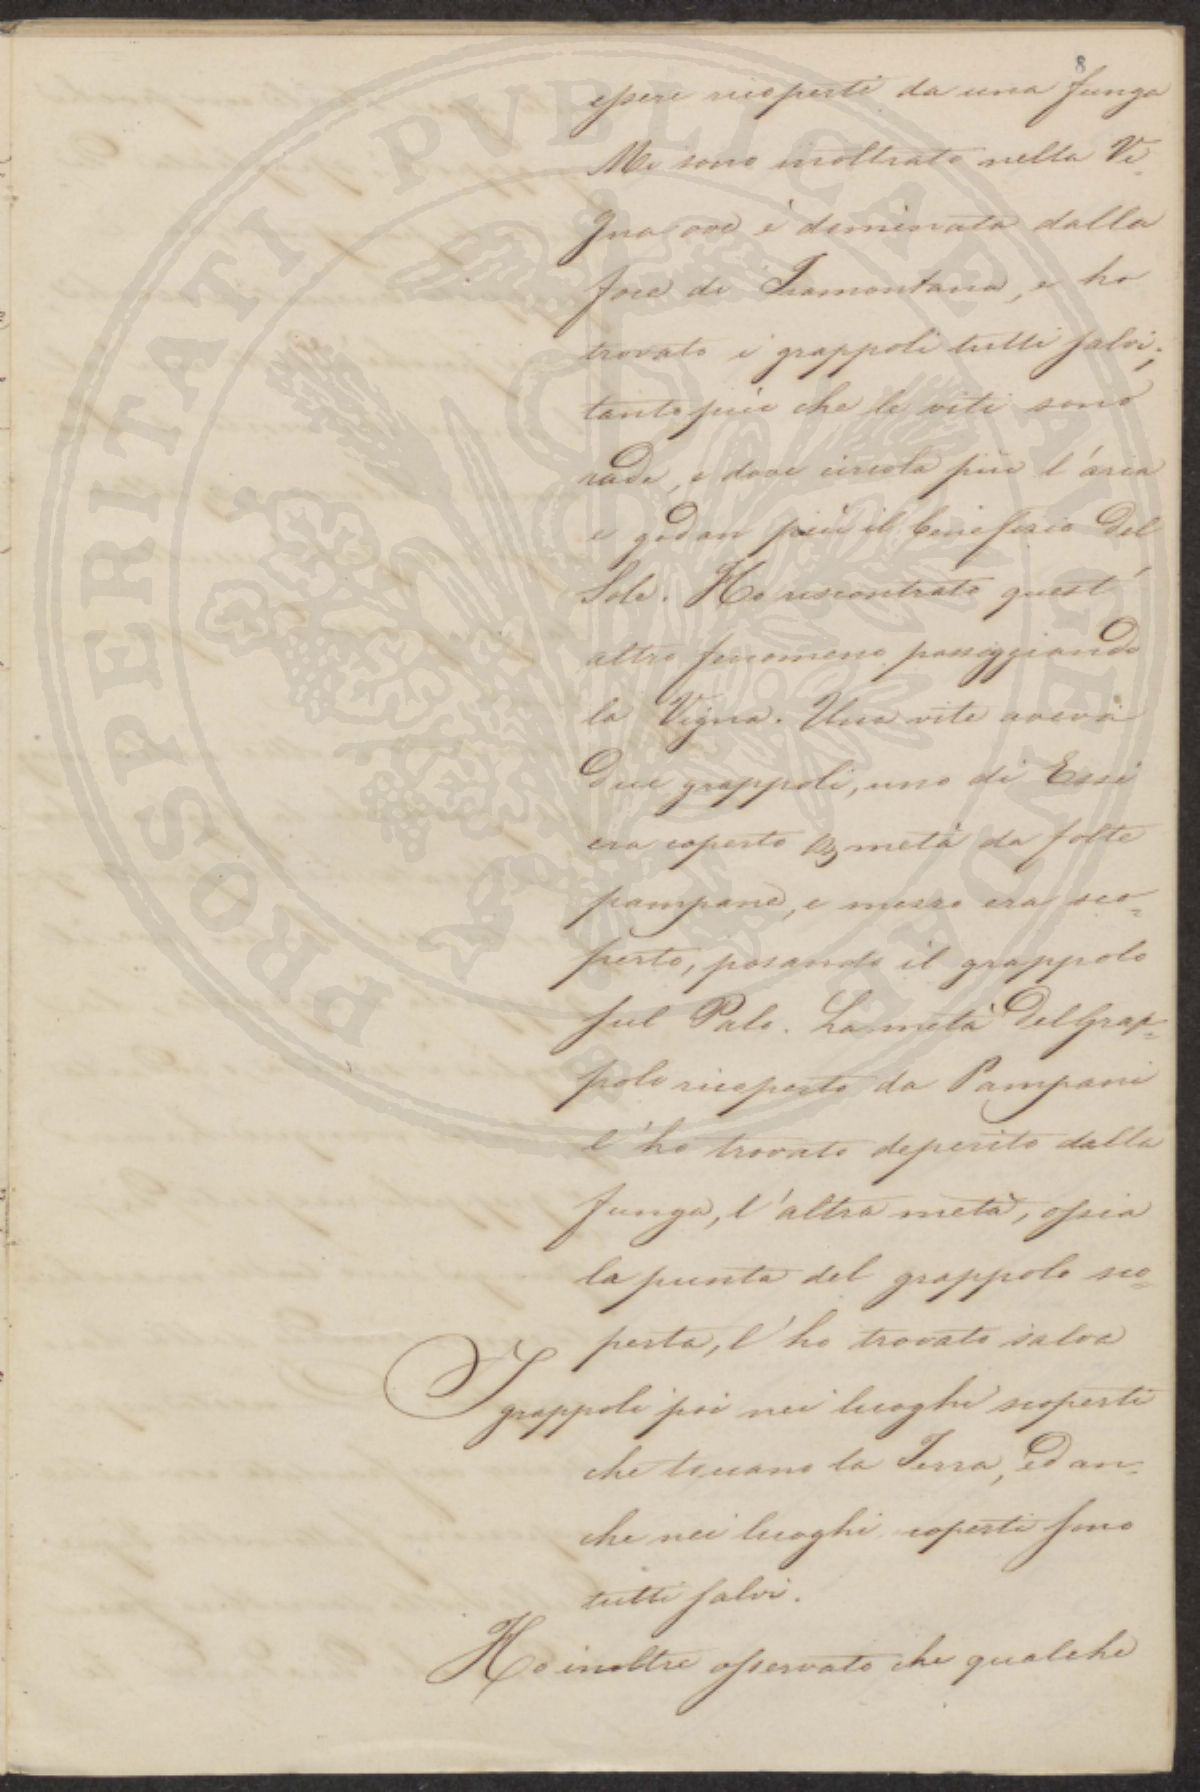 8
essere ricoperti da una funga
Mi sono inoltrato nella Vi-
gna ove è dominata dalla
foce di Tramontana, e ho
trovato i grappoli tutti salvi;
tanto più che le viti sono
rade, e dove circola più l'aria
e godon più il benefizio del
Sole. Ho riscontrato quest'
altro fenomeno passeggiando
la Vigna. Una vite aveva
due grappoli, uno di Essi
era coperto metà da folte
pampane, e mezzo era sco-
perto, posando il grappolo
sul Palo. La metà del Grap-
polo ricoperto da Pampani
l'ho trovato deperito dalla
funga, l'altra metà, ossia
la punta del grappolo sco-
perta, l'ho trovato salva
I grappoli poi nei luoghi scoperti
che toccano la Terra, ed an-
che nei luoghi coperti sono
tutti salvi.
Ho inoltre osservato che qualche
PROSPERITATI PVBLICAE AVGENDAE